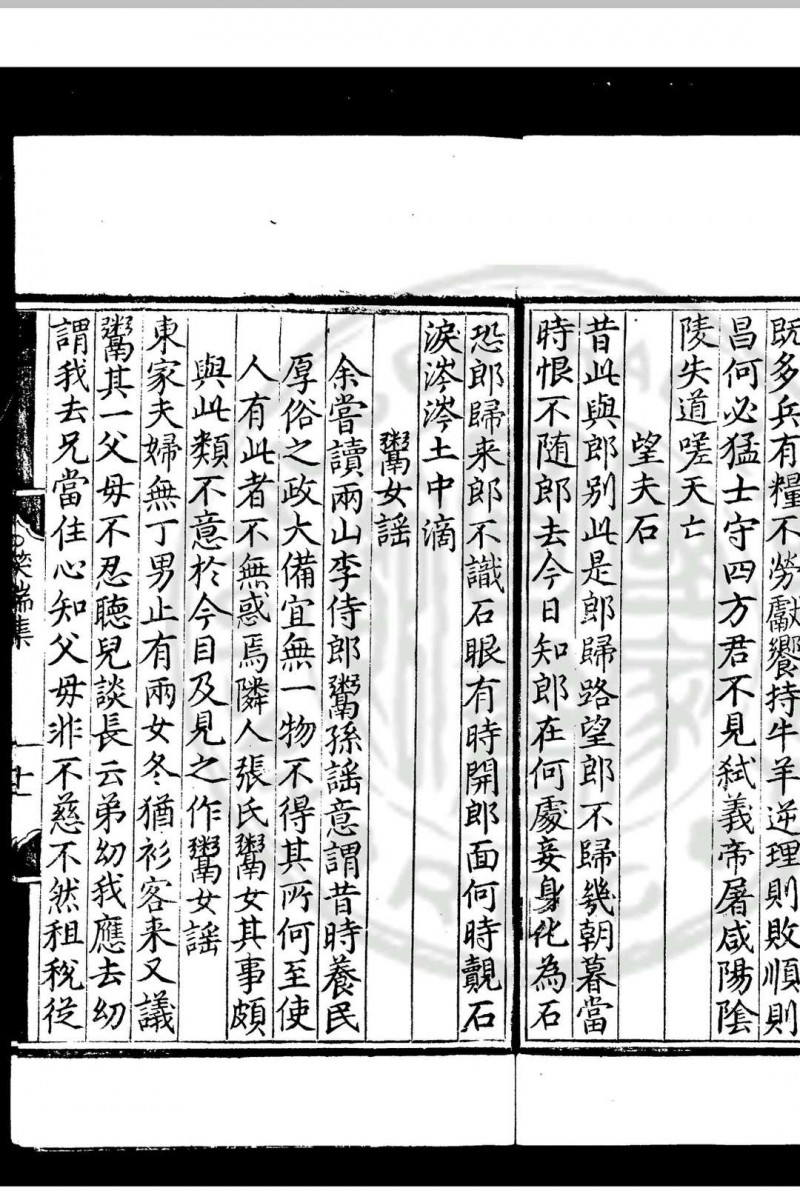 既多兵有糧不勞獻饗持牛羊逆理則敗順則
昌何必猛士守四方君不見弒義帝屠咸陽陰
陵失道嗟天亡
望夫石
昔此與郎別此是郎歸路望郎不歸幾朝暮當
時恨不随郎去今日知郎在何處妾身化為石
恐郎歸来郎不識石眼有時開郎面何時覿石
淚涔涔土中滴
鬻女謡
余嘗讀兩山李侍郎鬻孫謡意謂昔時養民
厚俗之政大備宜無一物不得其所何至使
人有此者不無惑焉隣人張氏鬻女其事頗
與此類不意於今目及見之作鬻女謡
東家夫婦無丁男止有兩女冬猶衫客来又議
鬻其一父母不忍聽兒談長云弟幼我應去幼
謂我去兄當住心知父母非不慈不然租稅従
集
十一